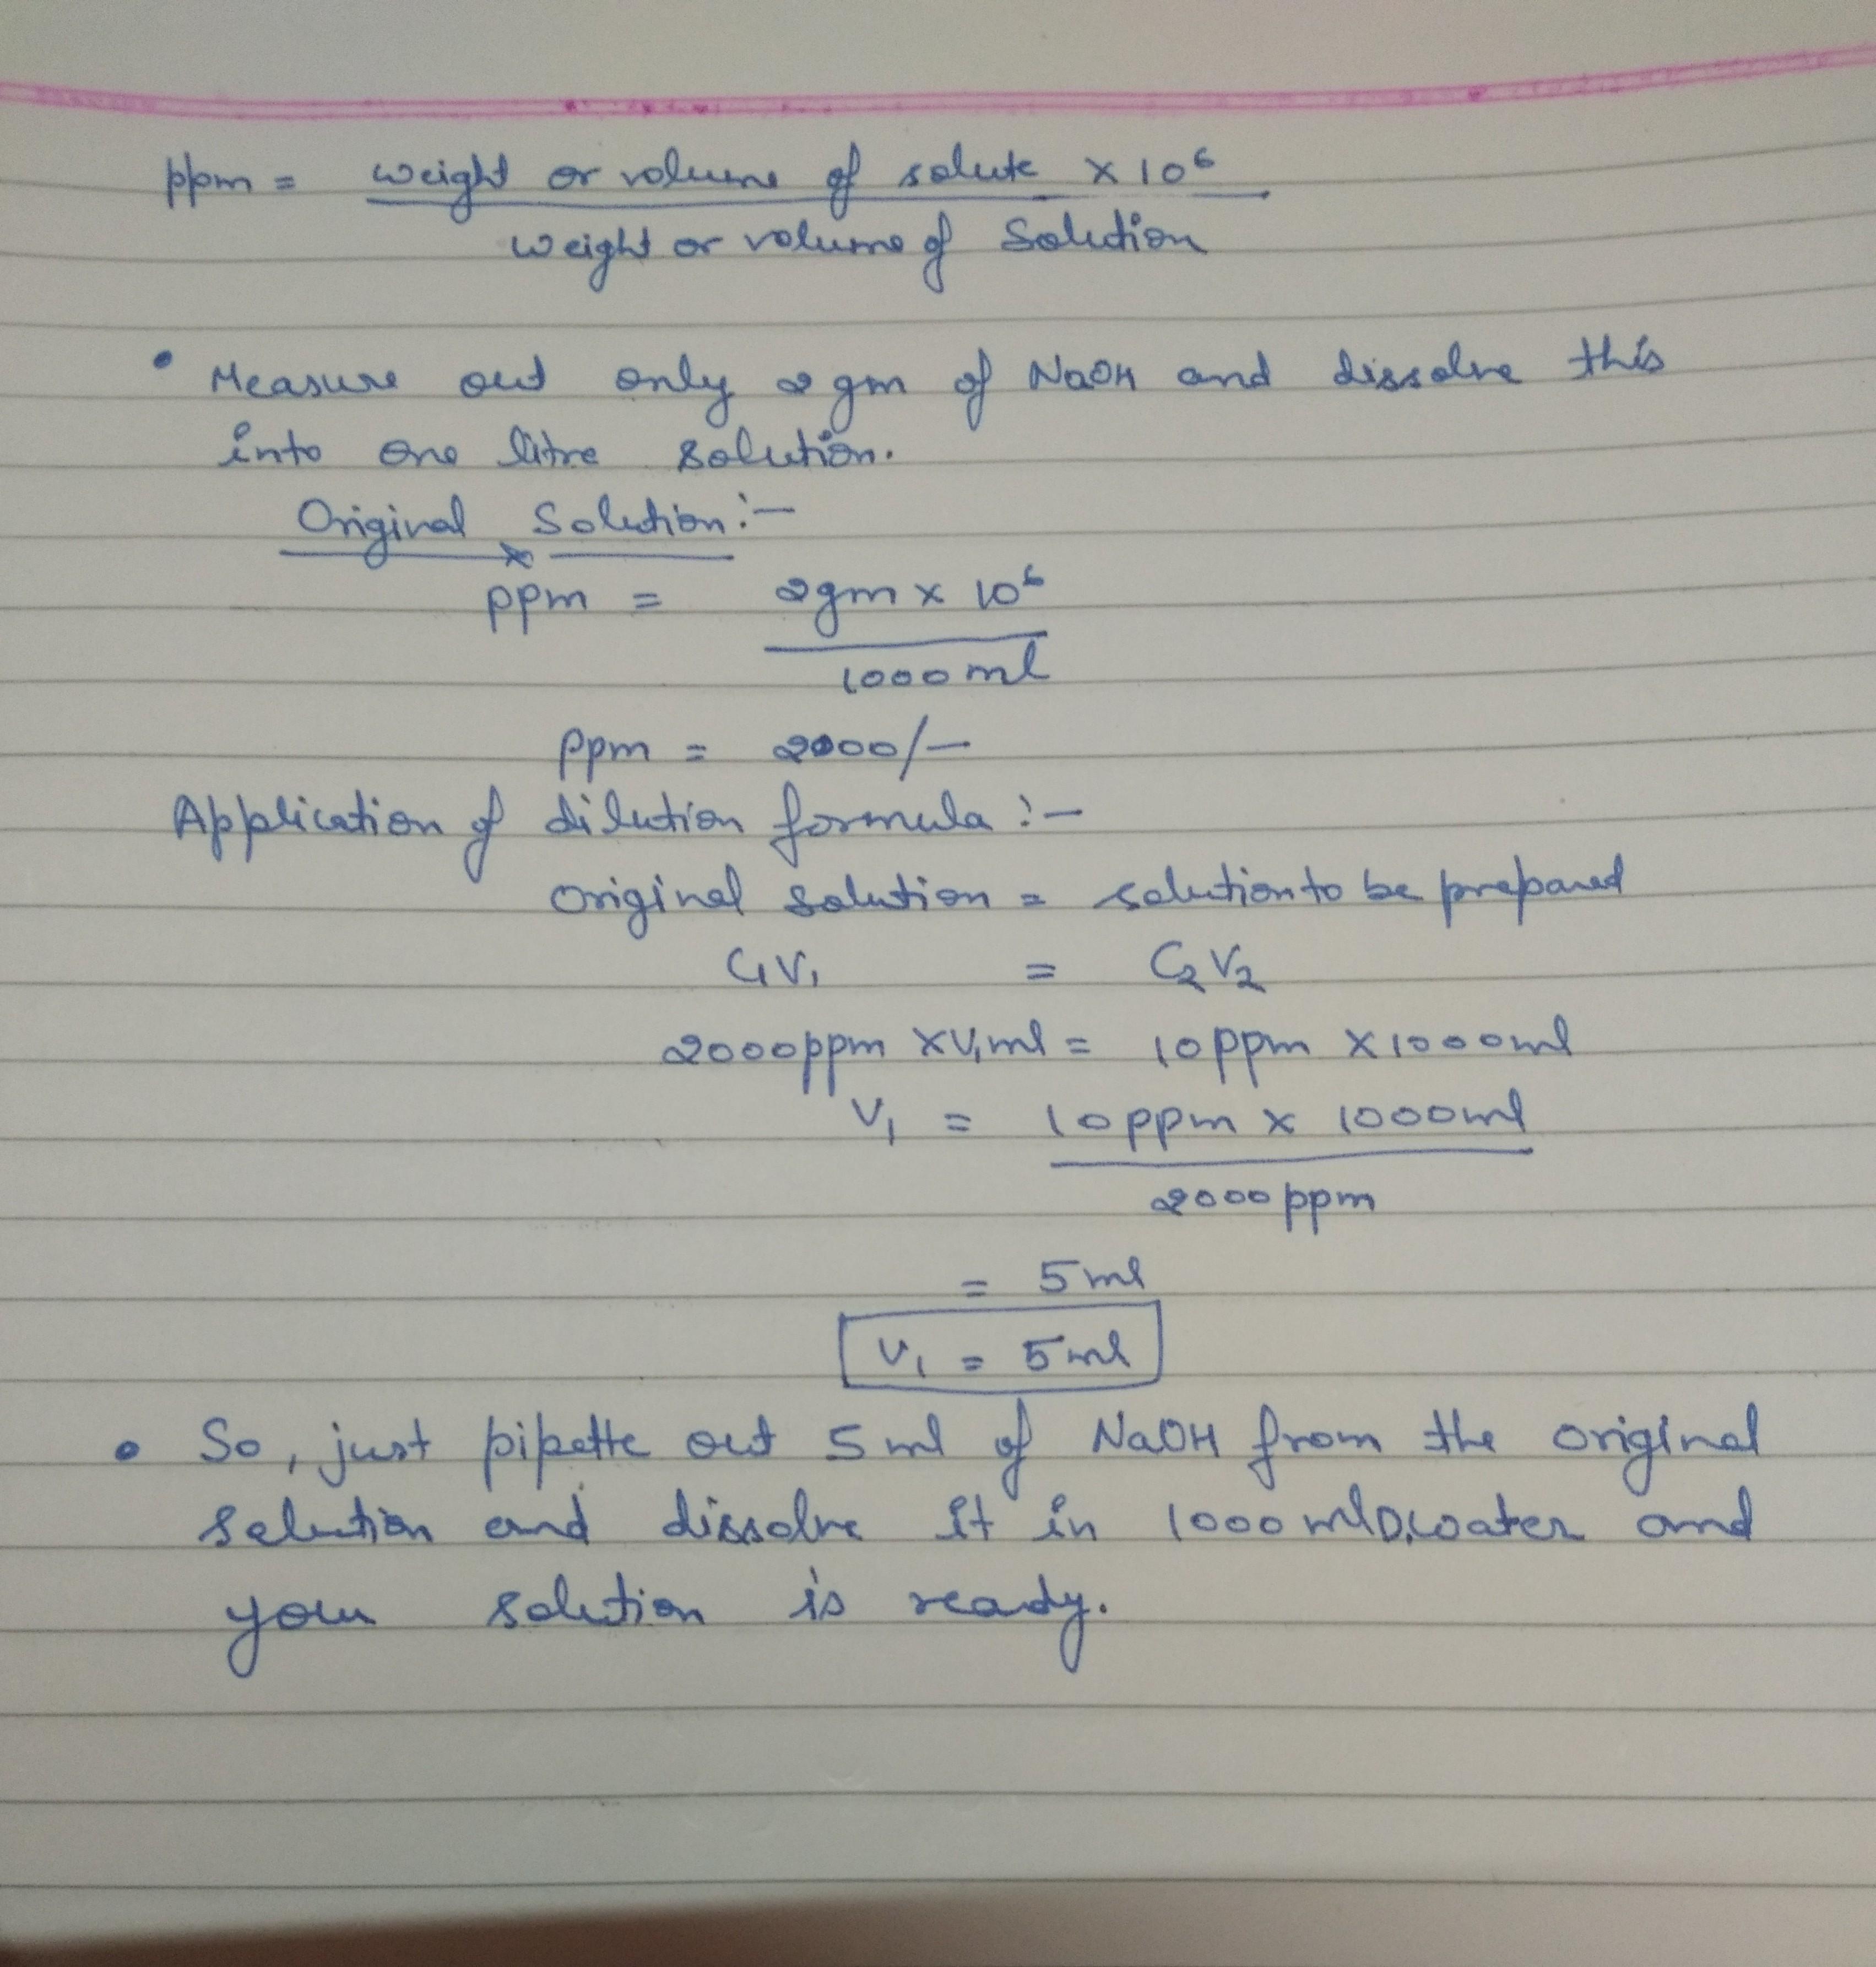 ppm = weight or volume of solute × 10⁶
weight or volume of Solution
• Measure out only 2 gm of NaOH and dissolve this
into one litre solution.
Original Solution :-
ppm = 2gm × 10⁶
1000 ml
ppm = 2000/-
Application of dilution formula :-
Original solution = solution to be prepared
C₁V₁ = C₂V₂
2000ppm × V₁ ml = 10ppm × 1000ml
V₁ = 10ppm × 1000ml
2000ppm
= 5ml
V₁ = 5ml
• So, just pipette out 5 ml of NaOH from the original
solution and dissolve it in 1000 ml D.water and
your solution is ready.